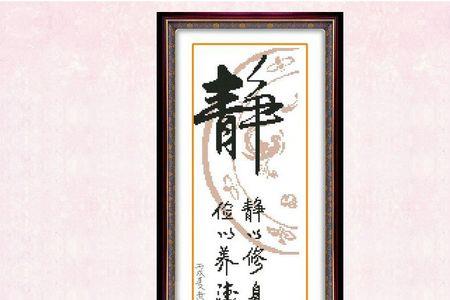 静
静以修身
俭以养德